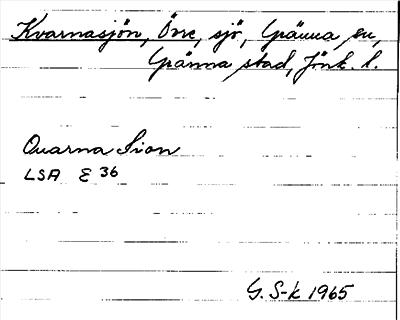 Kvarnasjön, Övre, sjö, Gränna sn,
Gränna stad, Jönk. l.
Quarna Sion
LSA E 36
G. S-k 1965